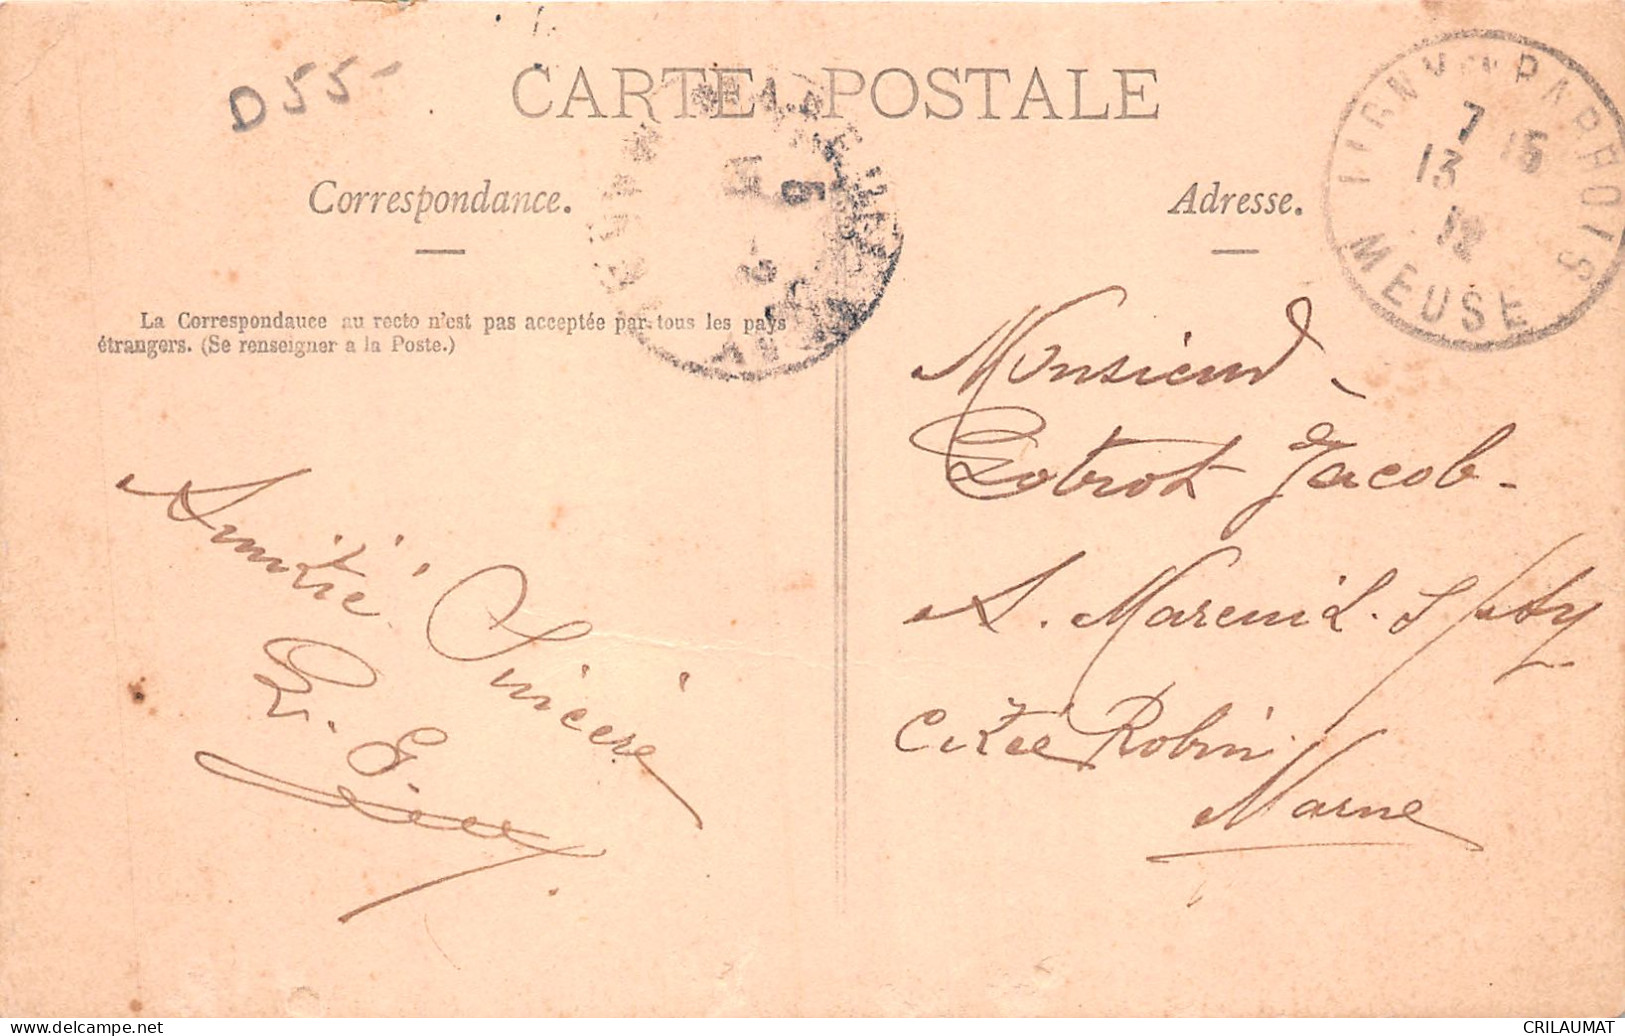 D55
CARTE POSTALE
Correspondance.
Adresse.
La Correspondance au recto n'est pas acceptée par tous les pays
étrangers. (Se renseigner a la Poste.)
7
13 15
12
MEUSE
Monsieur
Jacob.
A. Mareuil. S/ Ay
Citée Robin
Marne
Amitié Sincère
www.delcampe.net
CRILAUMAT